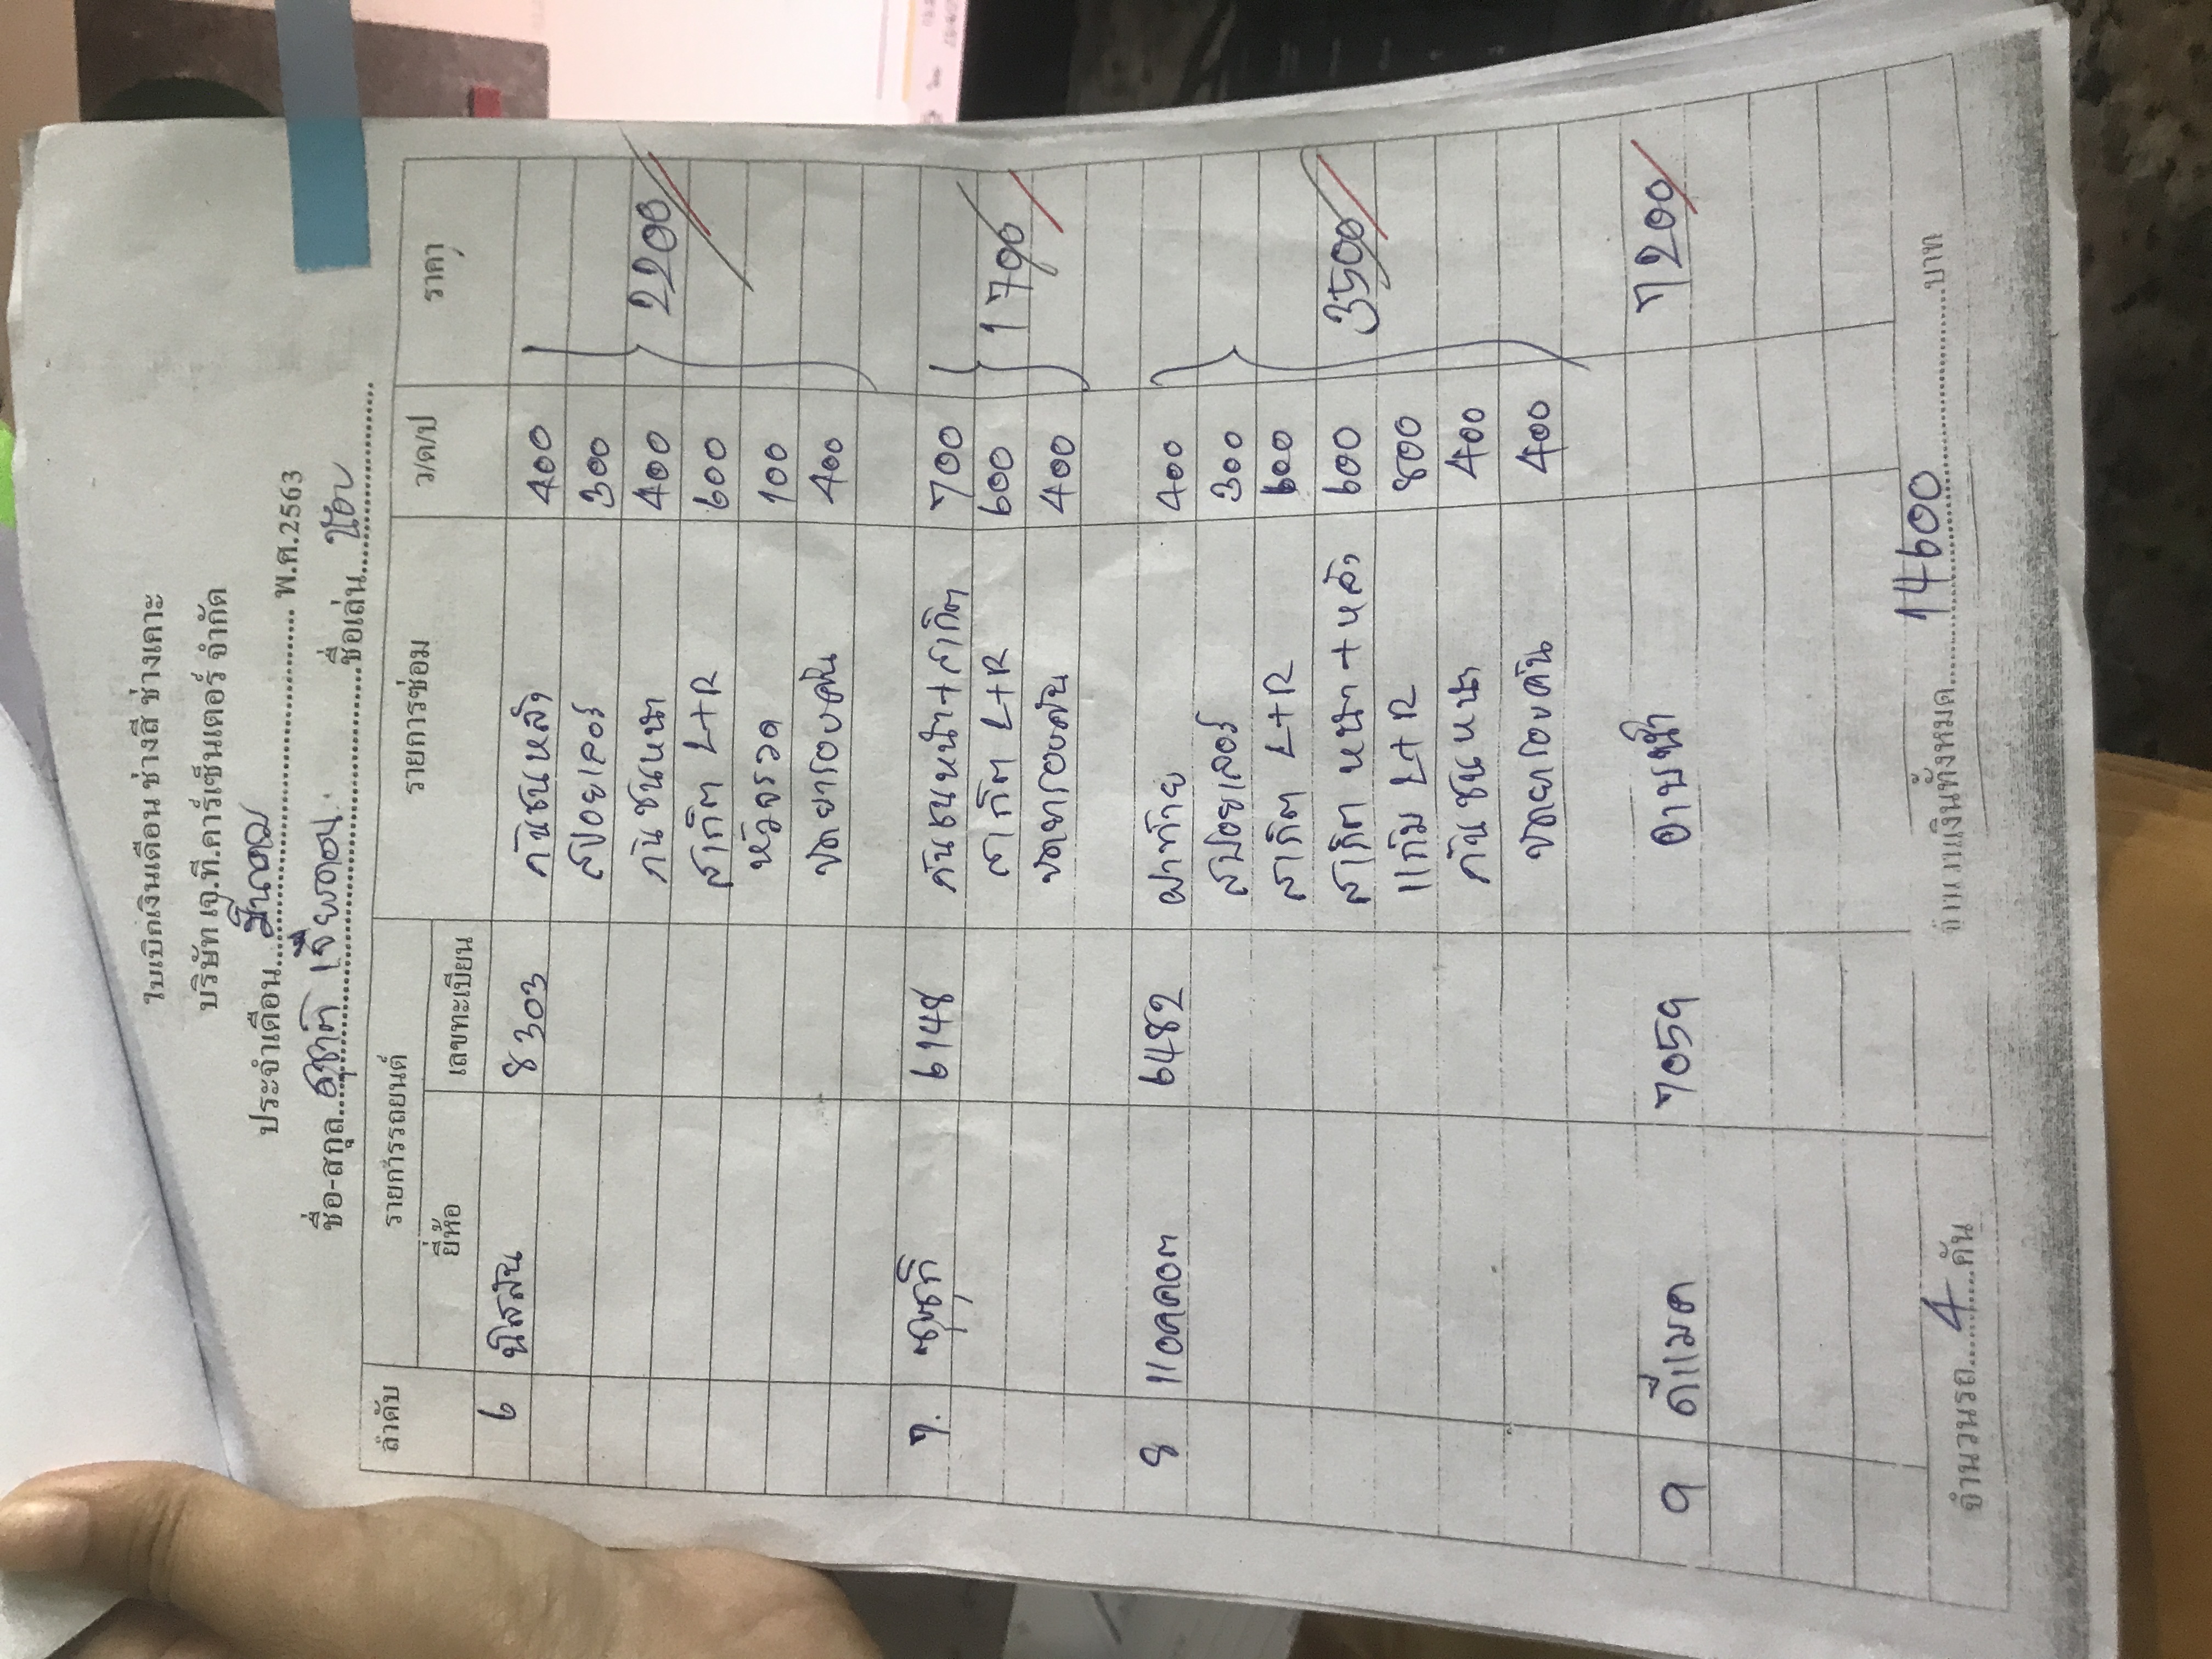 ใบเบิกเงินเดือน ช่างสี ช่างเคาะ
บริษัท เจ.ที.คาร์เซ็นเตอร์ จำกัด
ประจำเดือน...มีนาคม... พ.ศ.2563
ชื่อ-สกุล...สุชาติ ...ชื่อเล่น...
ลำดับ รายการรถยนต์ รายการซ่อม ว/ด/ป ราคา
ยี่ห้อ เลขทะเบียน
6 นิสสัน 8303 กันชนหลัง 400
สปอยเลอร์ 300
กันชนหน้า 400 2200
สเกิต L+R 600
หัวจรวด 100
ขัดยารอบคัน 400
7. ซูซูกิ 6148 กันชนหน้า+สเกิต 700
สเกิต L+R 600 1700
ขัดยารอบคัน 400
8 แอคคอต 6482 ฝาท้าย 400
สปอยเลอร์ 300
สเกิต L+R 600
สเกิต หน้า+หลัง 600 3500
แก้ม L+R 800
กันชนหน้า 400
ขัดยารอบคัน 400
9 ดีแมค 7059 อาบน้ำ 7200
จำนวนรถ...4...คัน จำนวนเงินทั้งหมด...14600...บาท